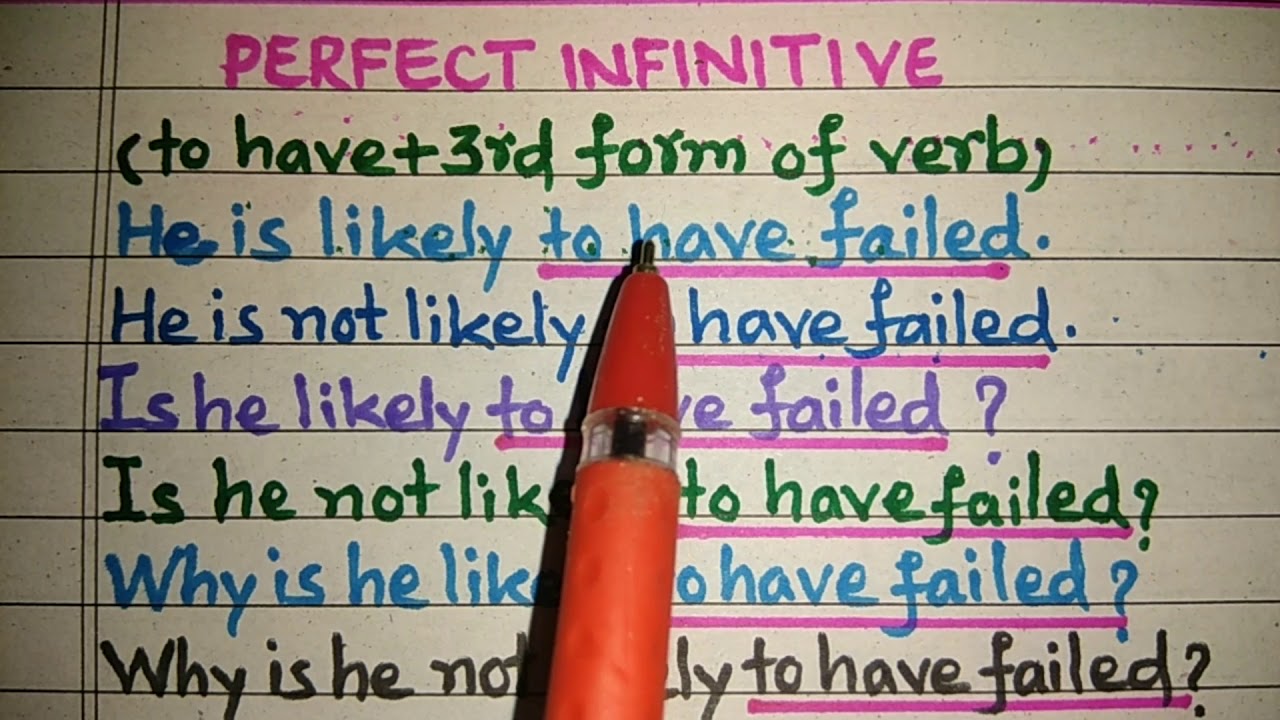 PERFECT INFINITIVE
(to have+3rd form of verb)
He is likely to have failed.
He is not likely have failed.
Is he likely to failed ?
Is he not to have failed?
Why is he have failed?
Why is he to have failed?